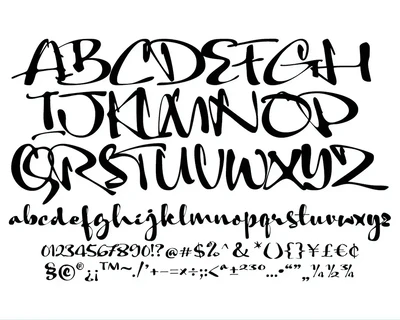 ABCDEFGH
IJKLMNOP
QRSTUVWXYZ
abcdefghijklmnopqrstuvwxyz
01234567890!?@#$%^&*(){}¥£€¢
§©®¿¡™~./'+-=×÷;:<ª±²³°...•“”„¼½¾